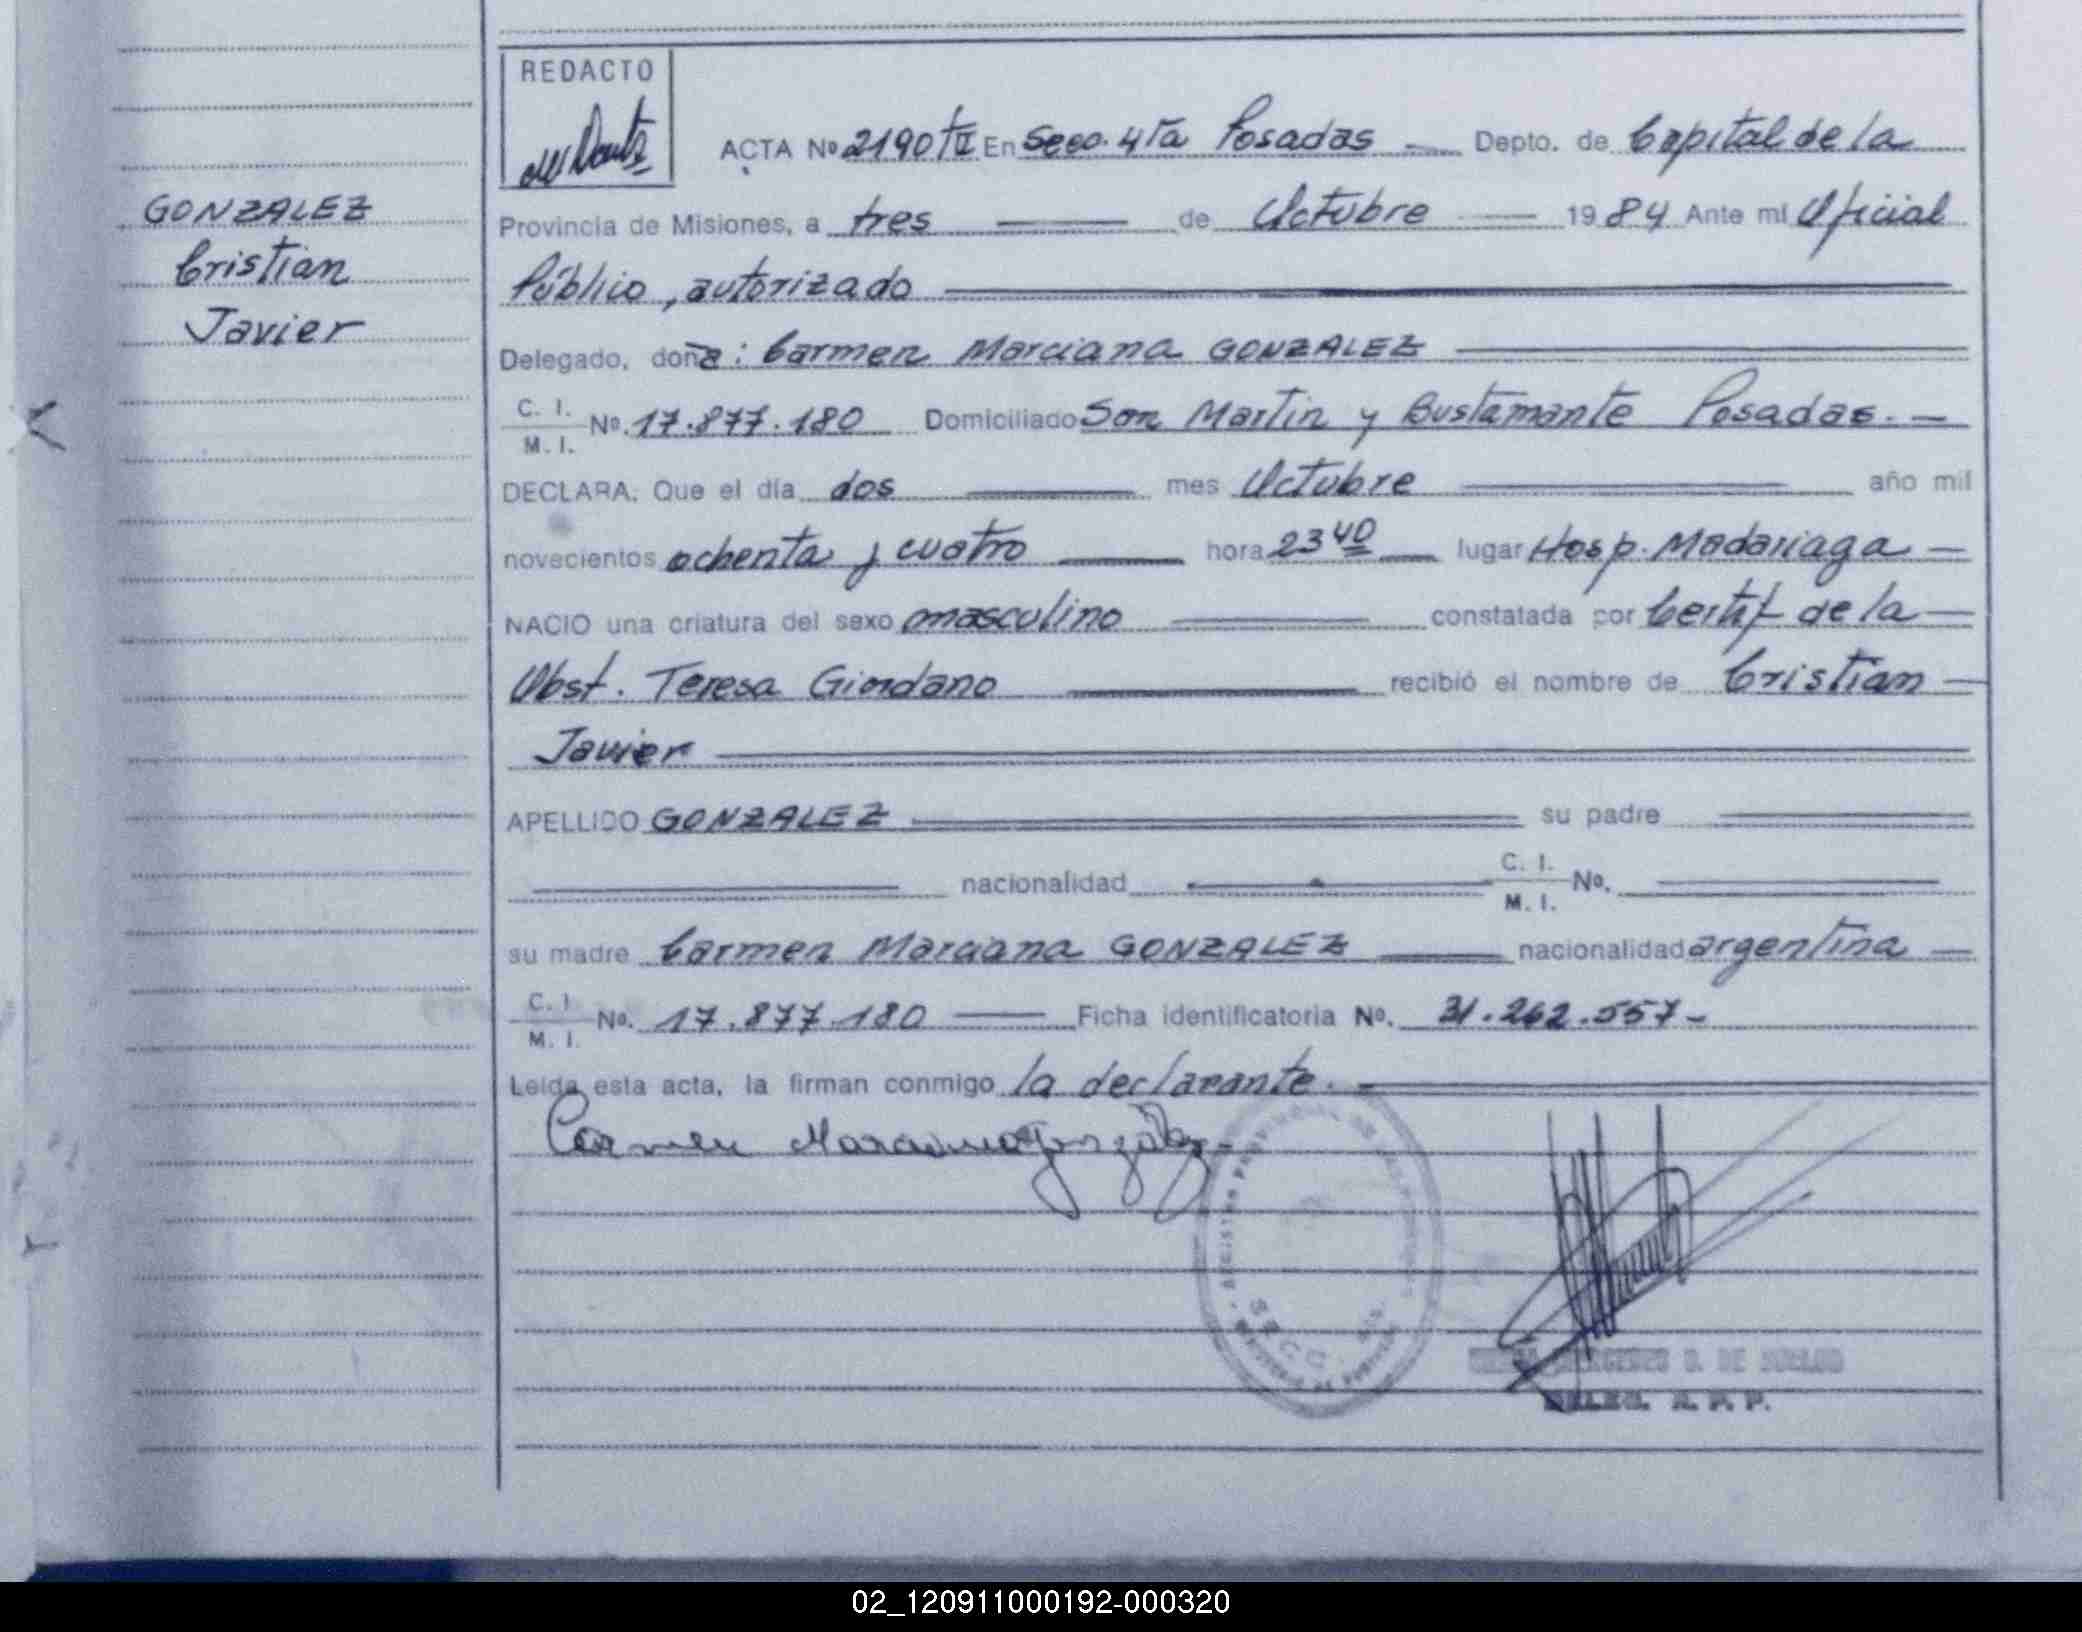 REDACTO
ACTA Nº 2190 tII En Secc. 4ta Posadas Depto. de Capital de la
GONZALEZ
Cristian
Javier
Provincia de Misiones, a tres de Octubre 1984 Ante mí Oficial
Público, autorizado
Delegado, doña: Carmen Marciana GONZALEZ
C. I. / M. I. Nº. 17.877.180 Domiciliado San Martin y Bustamante Posadas.
DECLARA: Que el día dos mes Octubre año mil
novecientos ochenta y cuatro hora 23 40 lugar Hosp. Madariaga
NACIO una criatura del sexo masculino constatada por Certif de la
Obst. Teresa Giordano recibió el nombre de Cristian
Javier
APELLIDO GONZALEZ su padre
nacionalidad C. I. / M. I. Nº.
su madre Carmen Marciana GONZALEZ nacionalidad argentina
C. I. / M. I. Nº. 17.877.180 Ficha identificatoria Nº. 31.262.557-
Leída esta acta, la firman conmigo la declarante.
Carmen Marciana Gonzalez
SECC.
DE
DELEG. R. P. P.
02_120911000192-000320